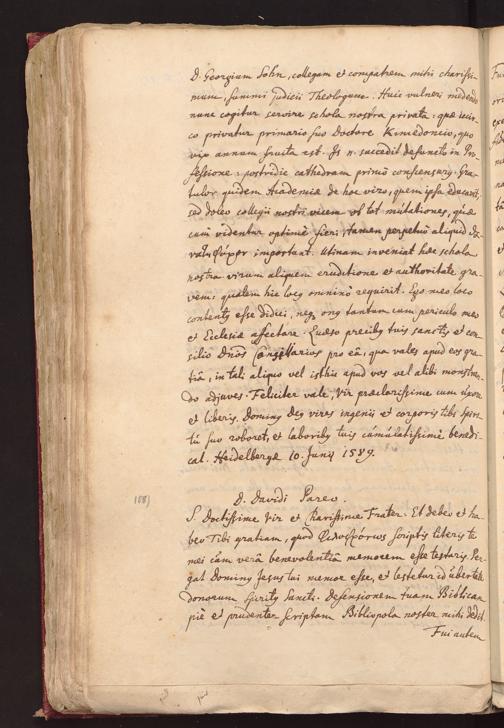 D. Georgium Sohn, collegam et compatrem mihi charissi-
mum, summi judicii Theologum. Huic vulneri medendo
nunc cogitur servire schola nostra privata: quæ
privatur primario suo Doctore Kimedoncio, quo
vix annum fruita est. Is n. succedit defuncto in Pro-
fessione: postridie cathedram primũ conscensurq. Gra-
tulor quidem Academiæ de hoc viro, quem ipsa educavit,
sed doleo collegii nostri vicem vel tot mutationes, quæ
cum videntur optimè fieri, tamen perpetuò aliquid
important. Utinam inveniat hæc schola
nostra virum aliquem eruditione et authoritate gra-
vem: qualem hic locq omninò requirit. Ego meo loco
contentq esse didici, neq onq tantum cum periculo meo
et Ecclesiæ affectare. Quæso precibq tuis sanctis et con-
silio Dnõs Consiliarios pro eâ, qua vales apud eos gra-
tiâ, in tali aliquo vel isthic apud vos vel alibi monstran-
do adjuves. Feliciter vale, Vir præclarissime cum uxore
et liberis. Dominq Deq vires ingenii et corporis tibi Spiri-
tu suo roboret, et laboribq tuis cumulatissimè benedi-
cat. Heidelbergæ 10. Junij 1589.
188)
D. Davidi Pareo.
S. Doctissime Vir et Charissime Frater. Et debeo et ha-
beo Tibi gratiam, quod scriptis literis te
mei cum verâ benevolentiâ memorem esse testaris. Per-
gat Dominq Jesus tui memor esse, et testetur id ubertate
donorum Spiritq Sancti. Defensionem tuam Biblicam
piè et prudenter scriptam Bibliopola noster mihi dedit.
Fui autem